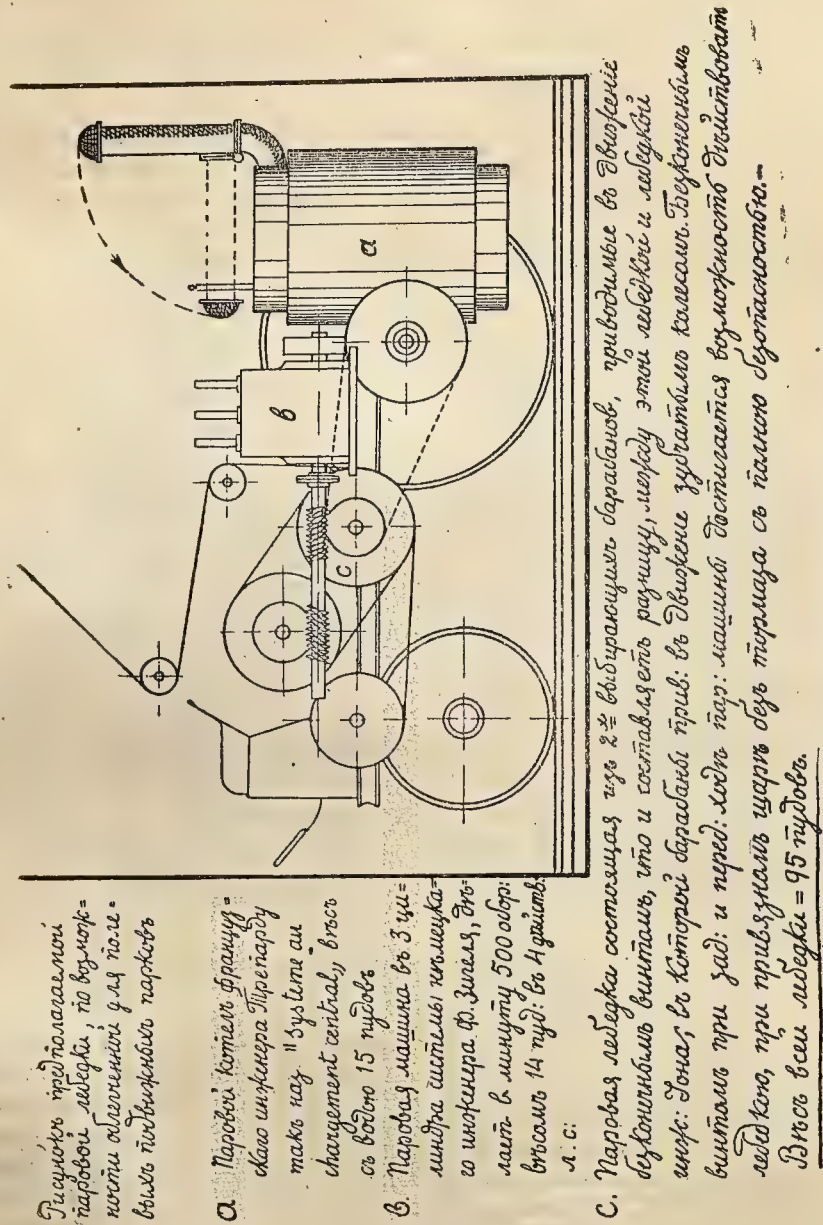 Рисунокъ предполагаемой
паровой лебедки, по возмож=
ности облегченной для поле=
выхъ подвижныхъ парковъ
a Паровой котелъ француз=
скаго инженера Трепарду
такъ наз. "Systeme au
chargement central„ вѣсъ
съ водою 15 пудовъ
в. Паровая машина въ 3 ци=
линдра системы нѣмецка=
го инженера Ф. Зигеля, дѣ=
лаетъ в минуту 500 обор:
вѣсомъ 14 пуд: въ 4 дѣйств:
л: с:
С. Паровая лебедка состоящая изъ 2х выбирающихъ барабановъ, приводимые въ движеніе
безконечнымъ винтомъ, что и составляетъ разницу, между этой лебедкой и лебедкой
инж: Іона, въ которой барабаны прив: въ движене зубчатымъ колесомъ. Безконечнымъ
винтомъ при зад: и перед: ходѣ пар: машины достигается возможность дѣйствовать
лебедкою, при привязномъ шарѣ безъ тормаза съ полною безопасностью.–
Вѣсъ всей лебедки = 95 пудовъ.
a
в
c